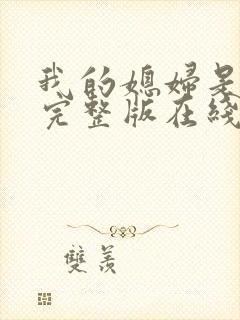 我的媳妇是
完整版在线
雙羨